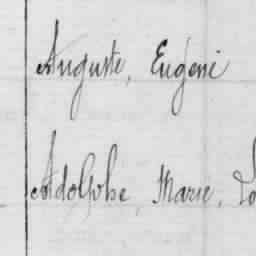 Auguste, Eugène
Adolphe, Marie,